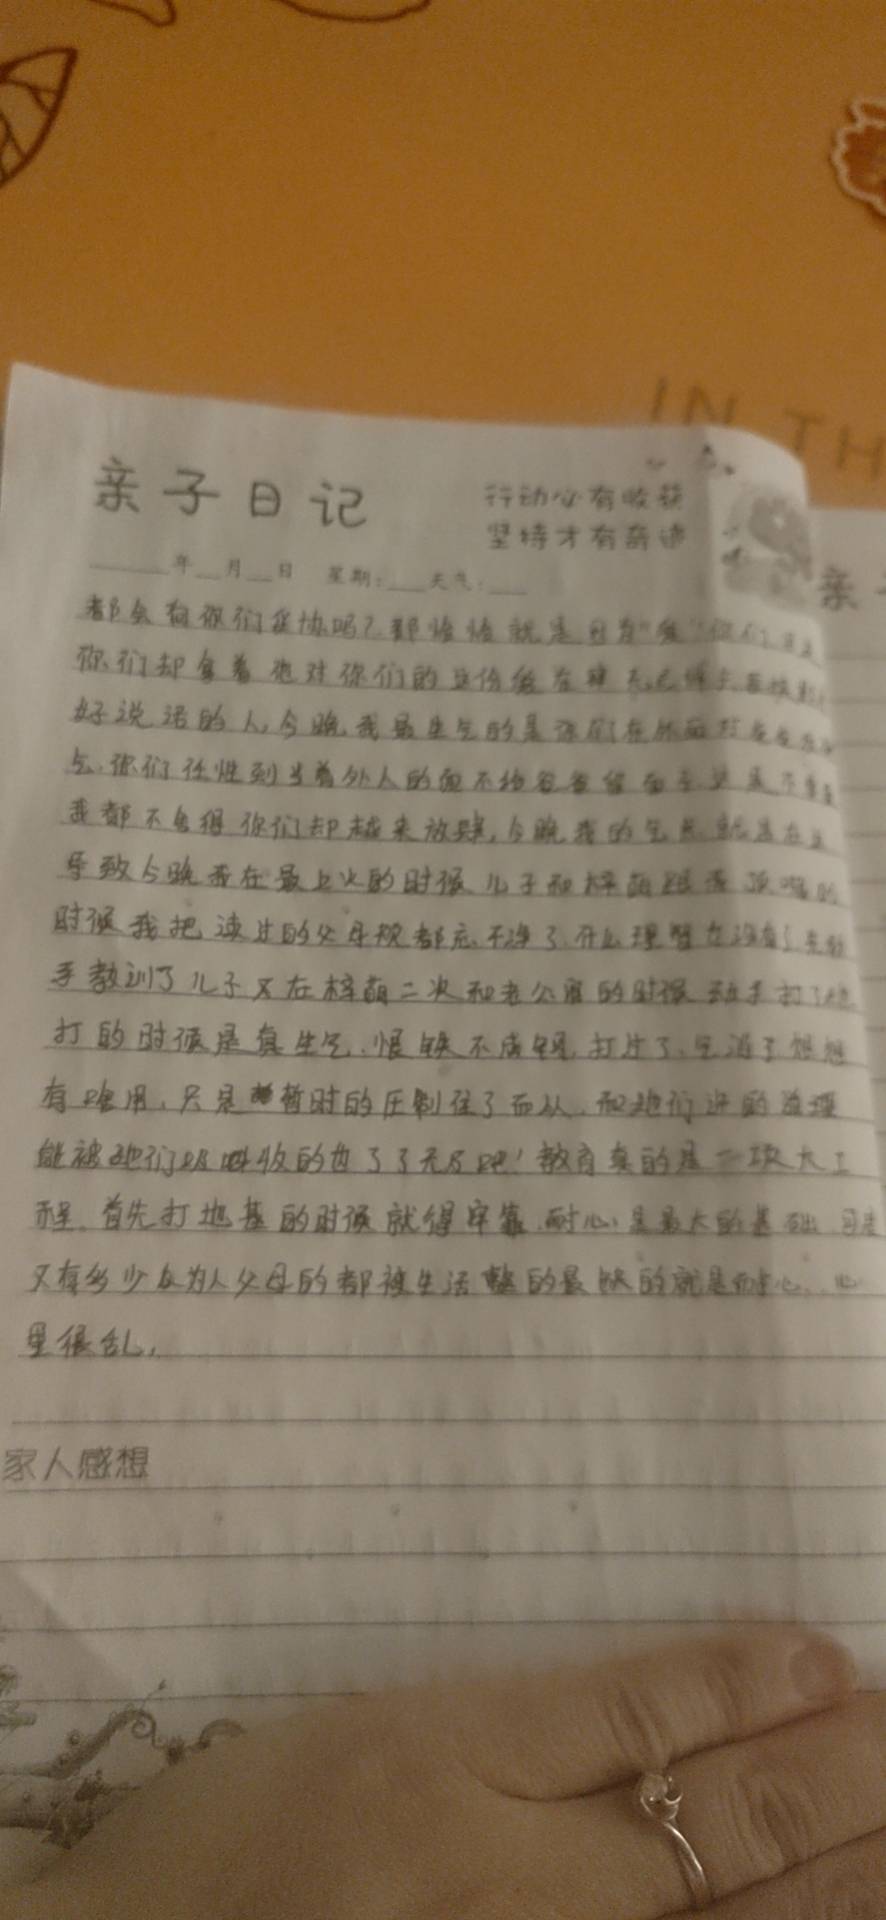 IN TH
亲子日记
行动必有收获
坚持才有奇迹
亲
年 月 日 星期: 天气:
都会向你们妥协吗?那恰恰就是因为"爱"你们
你们却拿着他对你们的这份爱在肆无忌惮
好说话的人,今晚我最生气的是你们在外面对爸爸发
气.你们任性到当着外人的面不给爸爸留面子
我都不舍得你们却越来放肆,今晚我的气点就是在这
导致今晚我在最上火的时候儿子和梓萌跟我顶嘴的
时候我把读过的父母规都忘干净了.什么理智也没有了
手教训了儿子又在梓萌二次和老公 的时候动手打了她
打的时候是真生气.恨铁不成钢.打过了.气消了想想
有啥用,只是暂时的压制住了而以.和她们讲的道理
能被她们吸收的也了了无及吧!教育真的是一项大工
程.首先打地基的时候就得牢靠.耐心是最大的基础
又有多少女为人父母的都被生活 的最缺的就是耐心..心
里很乱,
家人感想